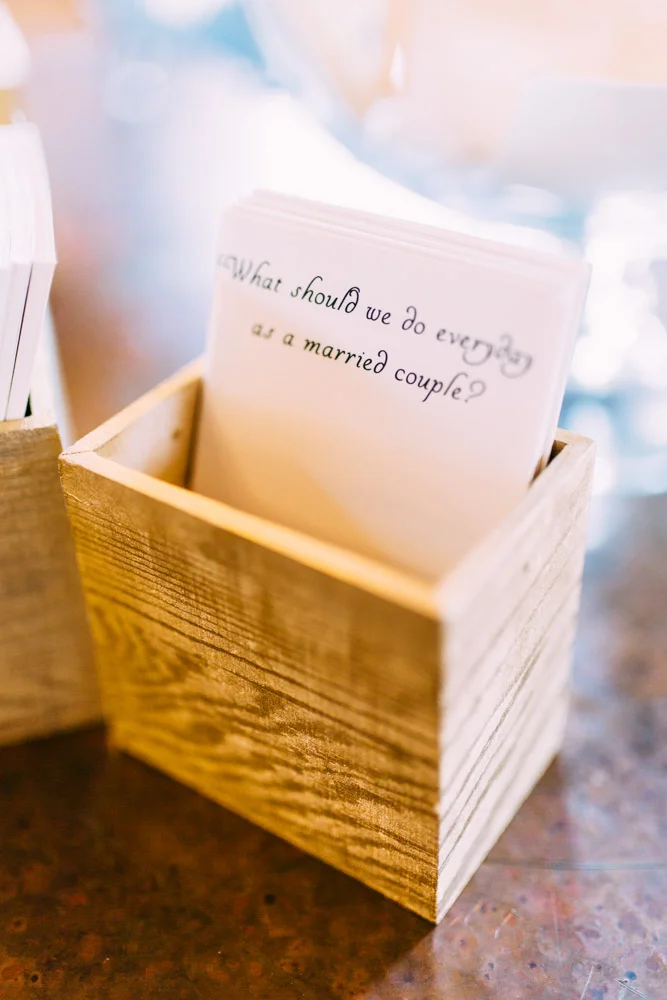 “What should we do everyday
as a married couple?